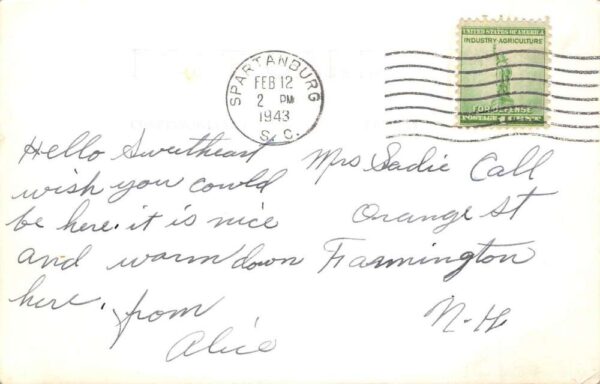 SPARTANBURG
FEB 12
2 PM
1943
S. C.
UNITED STATES OF AMERICA
INDUSTRY·AGRICULTURE
FOR DEFENSE
POSTAGE 1 CENT
Hello Sweetheart
wish you could
be here. it is nice
and warm down
here. from
Alice
Mrs Sadie Call
Orange St
Farmington
N-H.